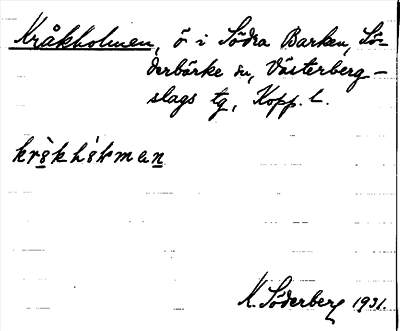 Kråkholmen, ö i Södra Barken, Sö-
derbärke sn, Västerberg-
slags tg, Kopp. L.
K. Söderberg 1931.